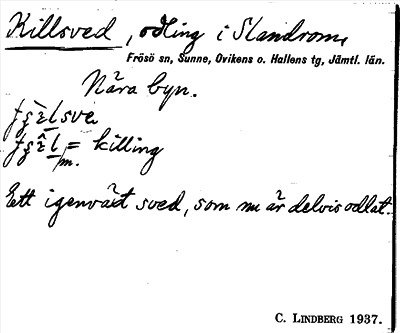 Killsved, odling i Slandrom,
Frösö sn, Sunne, Ovikens o. Hallens tg, Jämtl. län.
Nära byn.
= killing
m.
Ett igenväxt sved, som nu är delvis odlat.
C. LINDBERG 1937.